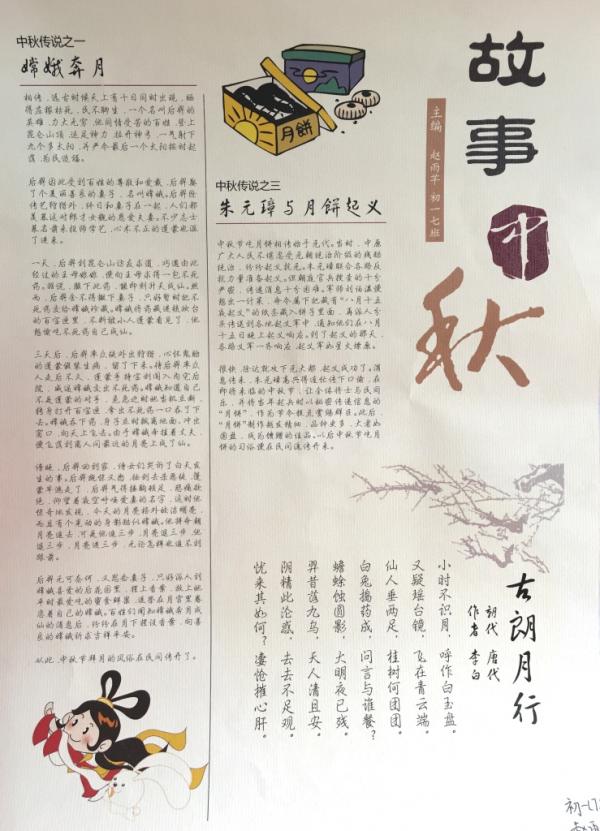 故事中秋
主编 赵雨芊 初一七班
中秋传说之一
嫦娥奔月
相传，远古时候天上有十日同时出现，晒
得庄稼枯死，民不聊生，一个名叫后羿的
英雄，力大无穷，他同情受苦的百姓，登上
昆仑山顶，运足神力，拉开神弓，一气射下
九个多太阳，并严令最后一个太阳按时起
落，为民造福。
后羿因此受到百姓的尊敬和爱戴，后羿娶
了个美丽善良的妻子，名叫嫦娥。后羿除
传艺狩猎外，终日和妻子在一起，人们都
羡慕这对郎才女貌的恩爱夫妻。不少志士
慕名前来投师学艺，心术不正的逄蒙也混
了进来。
一天，后羿到昆仑山访友求道，巧遇由此
经过的王母娘娘，便向王母求得一包不死
药。据说，服下此药，能即刻升天成仙。然
而，后羿舍不得撇下妻子，只好暂时把不
死药交给嫦娥珍藏。嫦娥将药藏进梳妆台
的百宝匣里，不料被小人逄蒙看见了，他
想偷吃不死药自己成仙。
三天后，后羿率众徒外出狩猎，心怀鬼胎
的逄蒙假装生病，留了下来。待后羿率众
人走后不久，逄蒙手持宝剑闯入内宅后
院，威逼嫦娥交出不死药。嫦娥知道自己不
是逄蒙的对手，危急之时她当机立断，
转身打开百宝匣，拿出不死药一口吞了下
去。嫦娥吞下药，身子立时飘离地面、冲出
窗口，向天上飞去。由于嫦娥牵挂着丈夫，
便飞落到离人间最近的月亮上成了仙。
傍晚，后羿回到家，侍女们哭诉了白天发
生的事。后羿既惊又怒，抽剑去杀恶徒，逄
蒙早逃走了，后羿气得捶胸顿足，悲痛欲
绝，仰望着夜空呼唤爱妻的名字，这时他
惊奇地发现，今天的月亮格外皎洁明亮，
而且有个晃动的身影酷似嫦娥。他拼命朝
月亮追去，可是他追三步，月亮退三步，他
退三步，月亮进三步，无论怎样也追不到
跟前。
后羿无可奈何，又思念妻子，只好派人到
嫦娥喜爱的后花园里，摆上香案，放上她
平时最爱吃的蜜食鲜果，遥祭在月宫里眷
恋着自己的嫦娥。百姓们闻知嫦娥奔月成
仙的消息后，纷纷在月下摆设香案，向善
良的嫦娥祈求吉祥平安。
从此，中秋节拜月的风俗在民间传开了。
月餅
中秋传说之三
朱元璋与月饼起义
中秋节吃月饼相传始于元代。当时，中原
广大人民不堪忍受元朝统治阶级的残酷
统治，纷纷起义抗元。朱元璋联合各路反
抗力量准备起义。但朝庭官兵搜查的十分
严密，传递消息十分困难。军师刘伯温便
想出一计策，命令属下把藏有“八月十五
夜起义”的纸条藏入饼子里面，再派人分
头传送到各地起义军中，通知他们在八月
十五日晚上起义响应。到了起义的那天，
各路义军一齐响应，起义军如星火燎原。
很快，徐达就攻下元大都，起义成功了。消
息传来，朱元璋高兴得连忙传下口谕，在
即将来临的中秋节，让全体将士与民同
乐，并将当年起兵时以秘密传递信息的
“月饼”，作为节令糕点赏赐群臣。此后，
“月饼”制作越发精细，品种更多，大者如
圆盘，成为馈赠的佳品。以后中秋节吃月
饼的习俗便在民间流传开来。
古朗月行
朝代 唐代
作者 李白
小时不识月，呼作白玉盘。
又疑瑶台镜，飞在青云端。
仙人垂两足，桂树何团团。
白兔捣药成，问言与谁餐？
蟾蜍蚀圆影，大明夜已残。
羿昔落九乌，天人清且安。
阴精此沦惑，去去不足观。
忧来其如何？凄怆摧心肝。